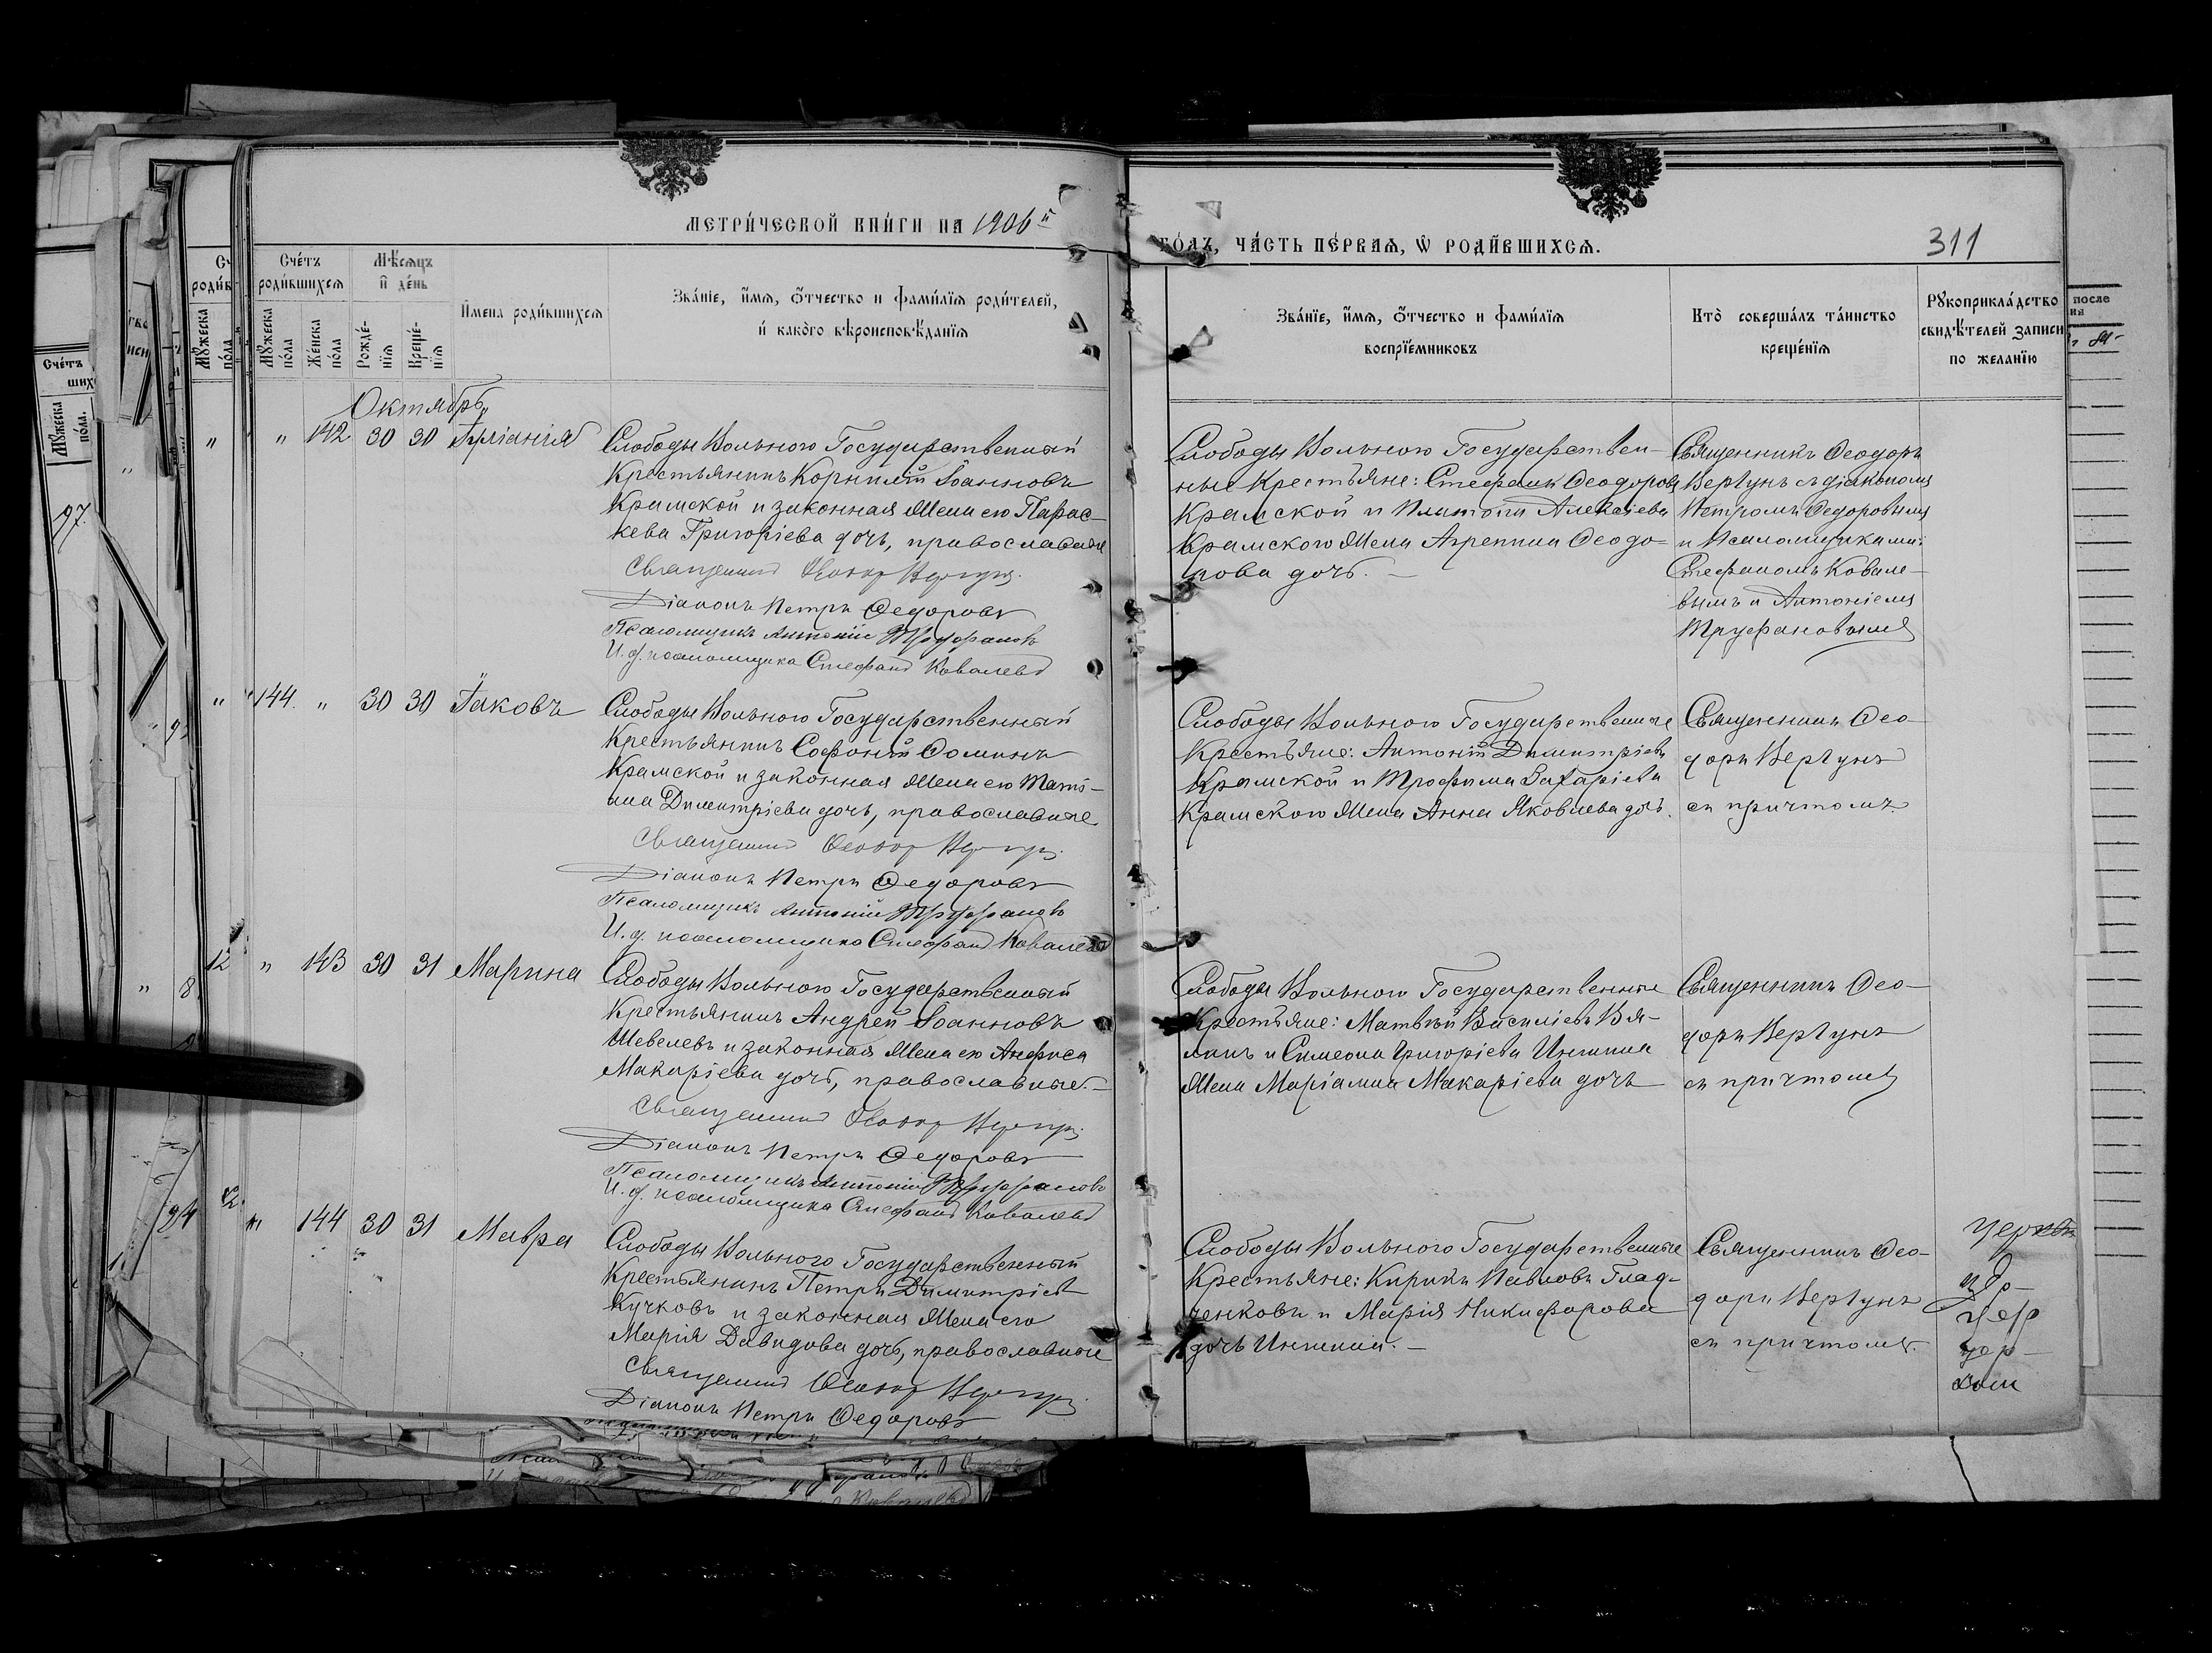 МЕТРИ́ЧЕСКОЙ КНИ́ГИ НА 1906 й
ГО́ДЪ, ЧА́СТЬ ПЕ́РВАЯ, Ѡ РОДИ́ВШИХСЯ.
311
Сче́тъ роди́вшихся
Мѣ́сяцъ и де́нь
Имена роди́вшихся
Зва́нїе, и́мя, о́тчество и фами́лїя роди́телей,
и како́го вѣроисповѣ́данїя
Зва́нїе, и́мя, о́тчество и фами́лїя
воспрїе́мниковъ
Кто̀ соверша́лъ та́инство
креще́нїя
Рꙋкоприкла́дство
свидѣ́телей записи
по жела́нїю
Мꙋ́жеска по́ла
Же́нска по́ла
Рожде́-нїя
Креще́-нїя
Октябрь
" 142 30 30
Слободы Вольного Государственный
Крестьянинъ Корнилій Іоанновъ
Крамской и законная жена его Парас-
кева Григоріева дочь, православные
Священникъ Ѳеодор Вергунъ
Діаконъ Петръ Ѳедоровъ
Псаломщикъ Антоній Труфановъ
И. д. псаломщика Стефанъ Ковалевъ
Слободы Вольного Государствен-
ные Крестьяне: Стефанъ Ѳеодоровъ
Крамской и Платона Алексіева
Крамского жена Агрепина Ѳеодо-
рова дочь. —
Священникъ Ѳеодоръ
Вергунъ съ діакономъ
Петромъ Ѳедоровымъ
и Псаломщиками:
Стефаномъ Ковале-
вымъ и Антоніемъ
Труфановымъ
" 144. " 30 30 Іаковъ
Слободы Вольного Государственный
Крестьянинъ Софоній Ѳоминъ
Крамской и законная жена его Таті-
ана Димитріева дочь, православные
Священникъ Ѳеодор Вергунъ
Діаконъ Петръ Ѳедоровъ
Псаломщикъ Антоній Труфановъ
И. д. псаломщика Стефанъ Ковалевъ
Слободы Вольного Государственные
Крестьяне: Антоній Димитріевъ
Крамской и Трофима Захаріева
Крамского жена Анна Яковлева дочь.
Священникъ Ѳео-
доръ Вергунъ
съ причтомъ
" 143 30 31 Марина
Слободы Вольного Государственный
Крестьянинъ Андрей Іоанновъ
Шевелевъ и законная жена его Анфиса
Макаріева дочь, православные. —
Священникъ Ѳеодор Вергунъ
Діаконъ Петръ Ѳедоровъ
Псаломщикъ Антоній Труфановъ
И. д. псаломщика Стефанъ Ковалевъ
Слободы Вольного Государственные
Крестьяне: Матвѣй Василіевъ
и Симеона Григоріева
жена Маріамна Макаріева дочь
Священникъ Ѳео-
доръ Вергунъ
съ причтомъ
" 144 30 31 Мавра
Слободы Вольного Государственный
Крестьянинъ Петръ Димитріевъ
Кучковъ и законная жена его
Марія Давидова дочь, православные
Священникъ Ѳеодор Вергунъ
Діаконъ Петръ Ѳедоровъ
Слободы Вольного Государственные
Крестьяне: Кирикъ Павловъ Глад-
ченковъ и Марія Никифорова
дочь
Священникъ Ѳео-
доръ Вергунъ
съ причтомъ.